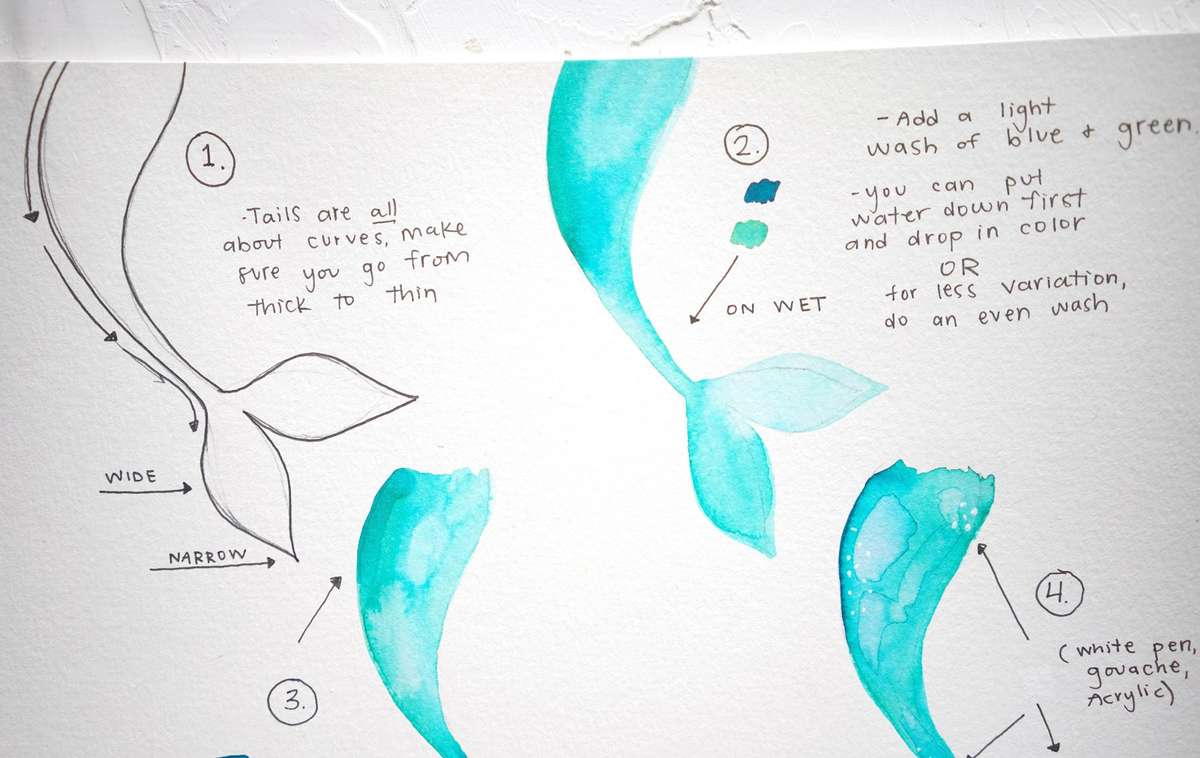 1.
-Tails are all
about curves, make
sure you go from
thick to thin
WIDE
NARROW
2.
ON WET
- Add a light
wash of blue + green
-you can put
water down first
and drop in color
OR
for less variation,
do an even wash
3.
4.
(white pen,
gouache,
Acrylic)